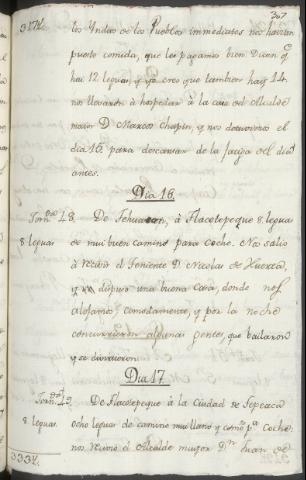 307
317½.
los Yndios de los Pueblos immediatos nos havian
puesto comida, que les pagamos bien Dicen q.e
hai 12 leguas, y yo creo que tambien hay 14.
nos llevaron à hospedar à la casa del Alcalde
maior D. Marcos Chopin, y nos detuvimos el
dia 15 para descansar de la fatiga del dia
antes.
Dia 16.
Jorn.da 48. De Tehuacan, à Tlacotepeque 8. leguas
8 leguas de mui buen camino para Coche. Nos salio
à recivir el Teniente D. Nicolas de Huerta,
y dispuso una buena Casa, donde nos
alojamos comodamente, y por la noche
concurrieron algunas gentes, que bailaron
y se divirtieron.
Dia 17.
Jorn.da 49. De Tlacotepeque à la Ciudad de Tepeaca
8 leguas. ocho leguas de camino mui llano, y como p.a Coche.
nos recivio el Alcalde mayor D.n Juan de
333½.